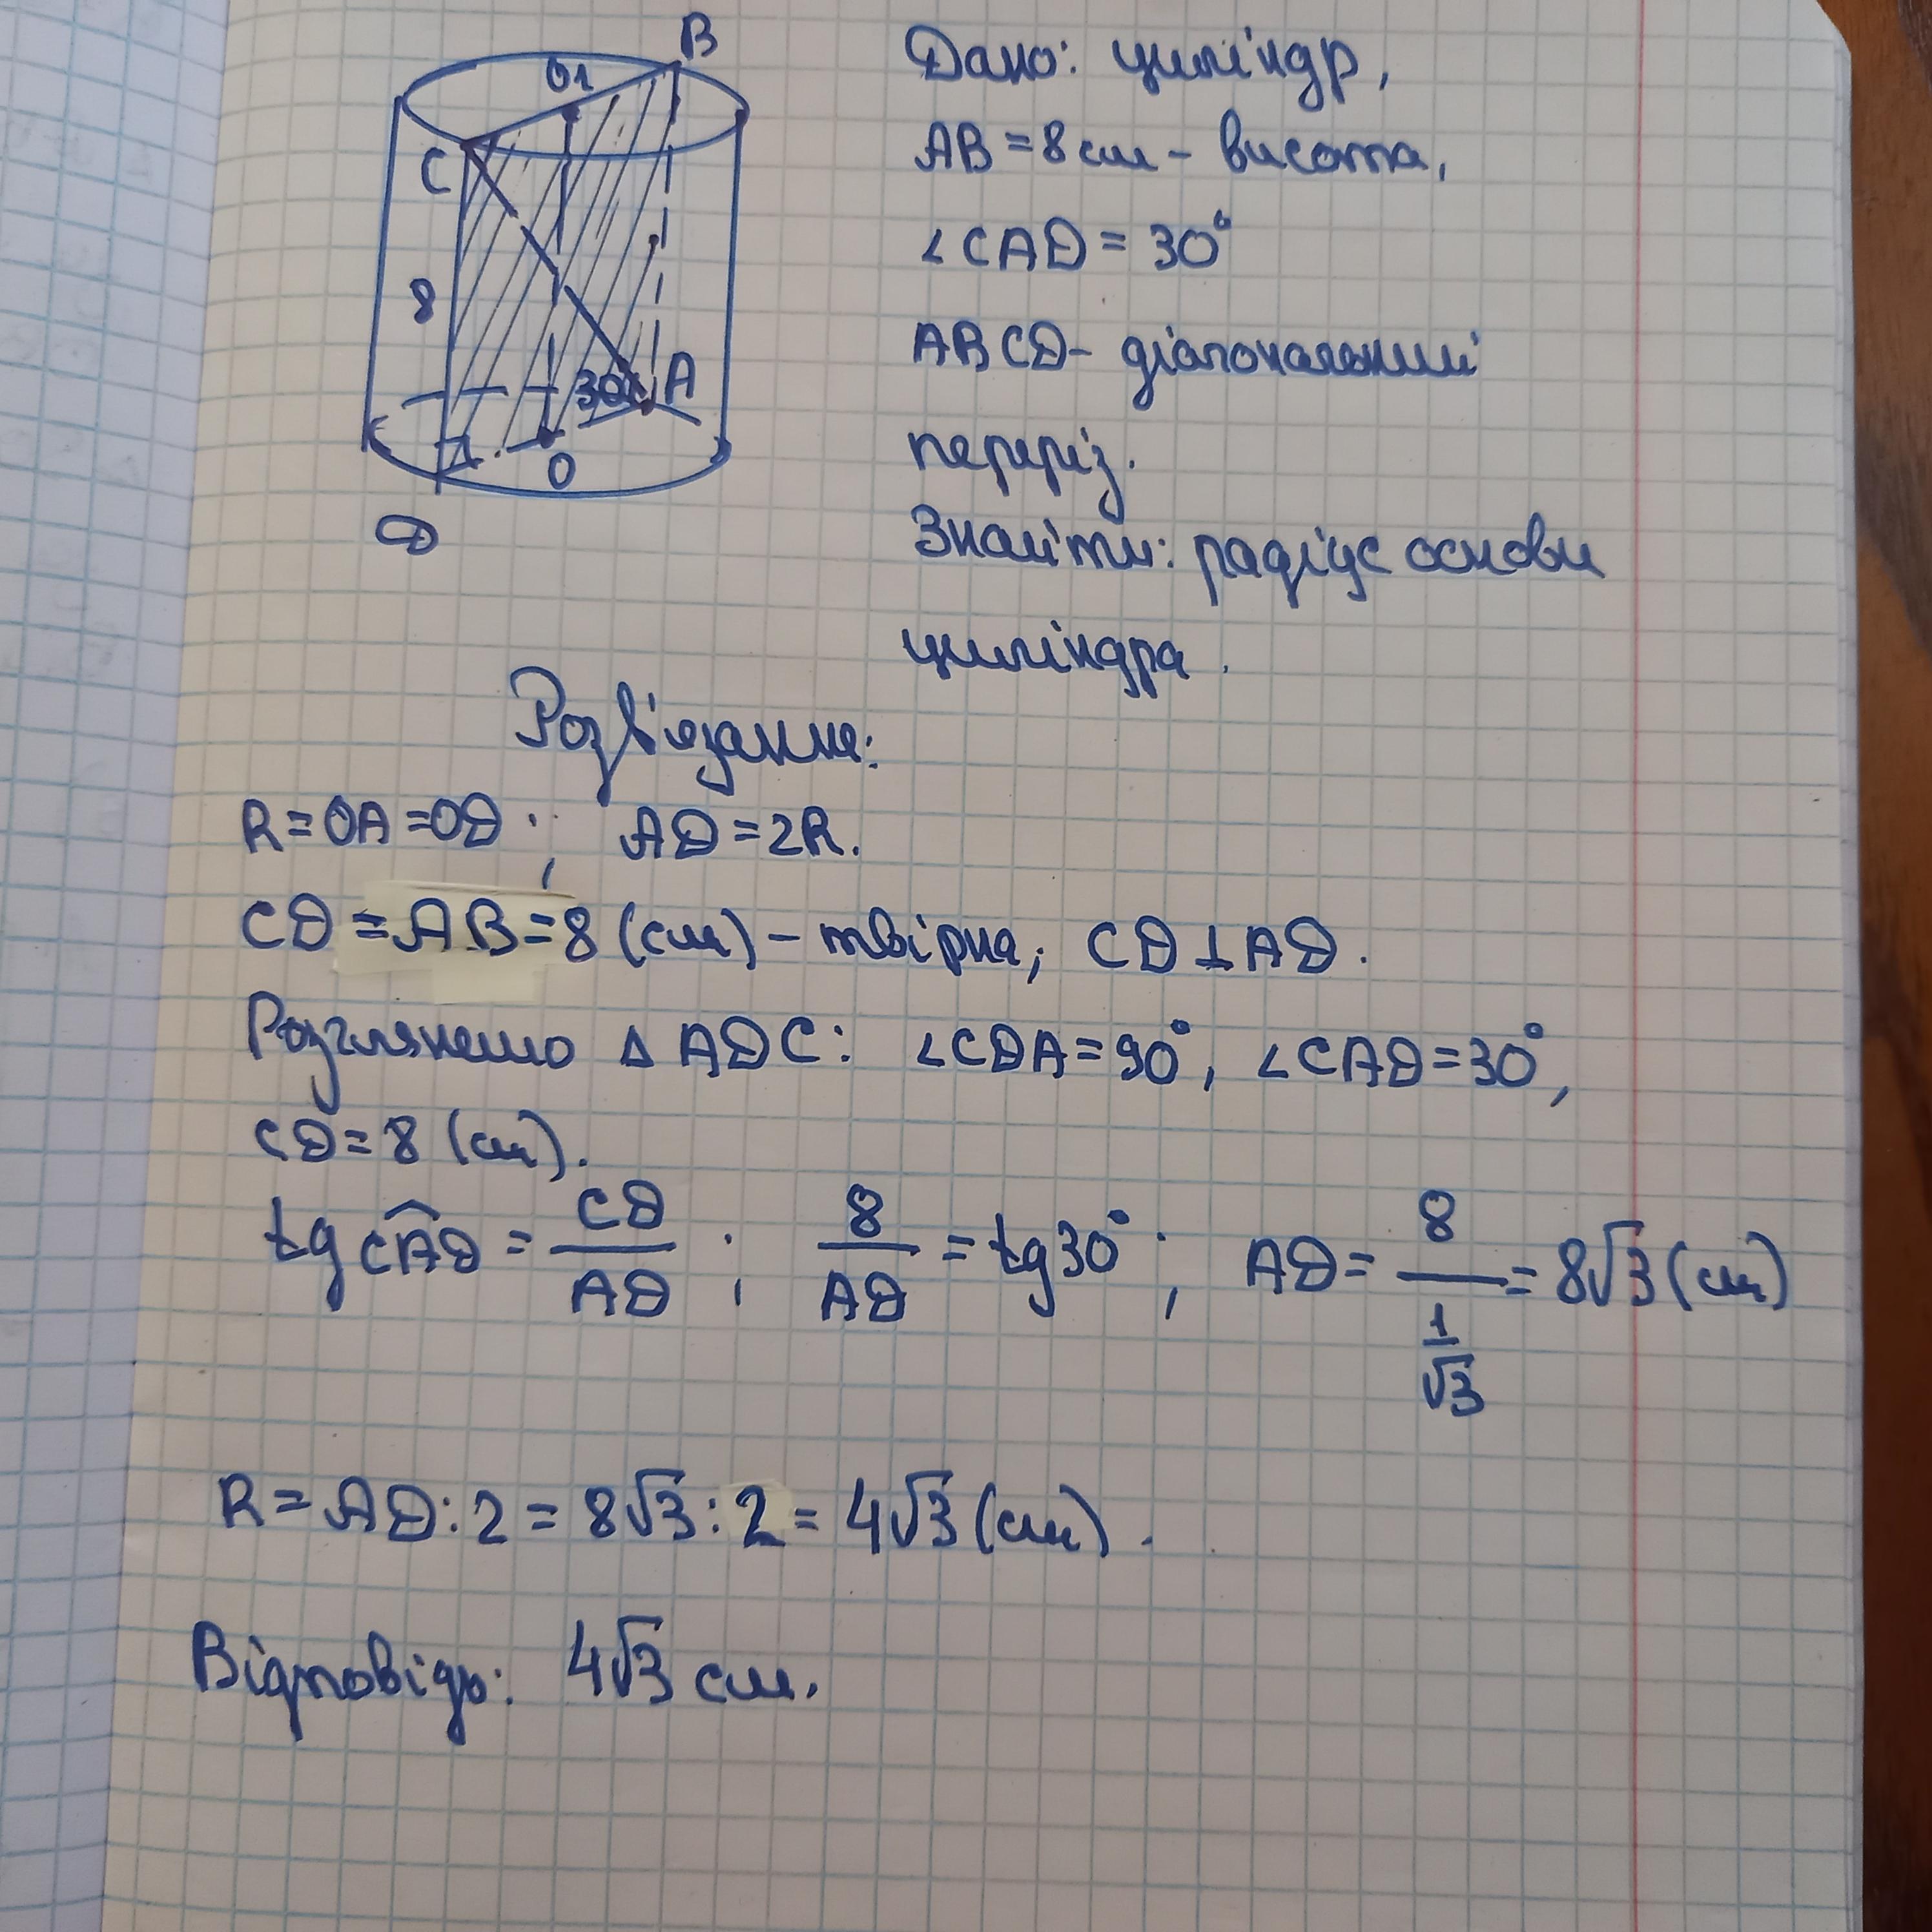 B
O1
C
8
30°
A
O
D
Дано: циліндр,
AB = 8 см – висота,
∠CAD = 30°
ABCD – діагональний
переріз.
Знайти: радіус основи
циліндра.
Розв'язання:
R = OA = OD; AD = 2R.
CD = AB = 8 (см) – твірна; CD ⊥ AD.
Розглянемо △ ADC: ∠CDA = 90°, ∠CAD = 30°,
CD = 8 (см).
tg CAD = CD/AD; 8/AD = tg 30°; AD = 8/(1/√3) = 8√3 (см)
R = AD : 2 = 8√3 : 2 = 4√3 (см).
Відповідь: 4√3 см.